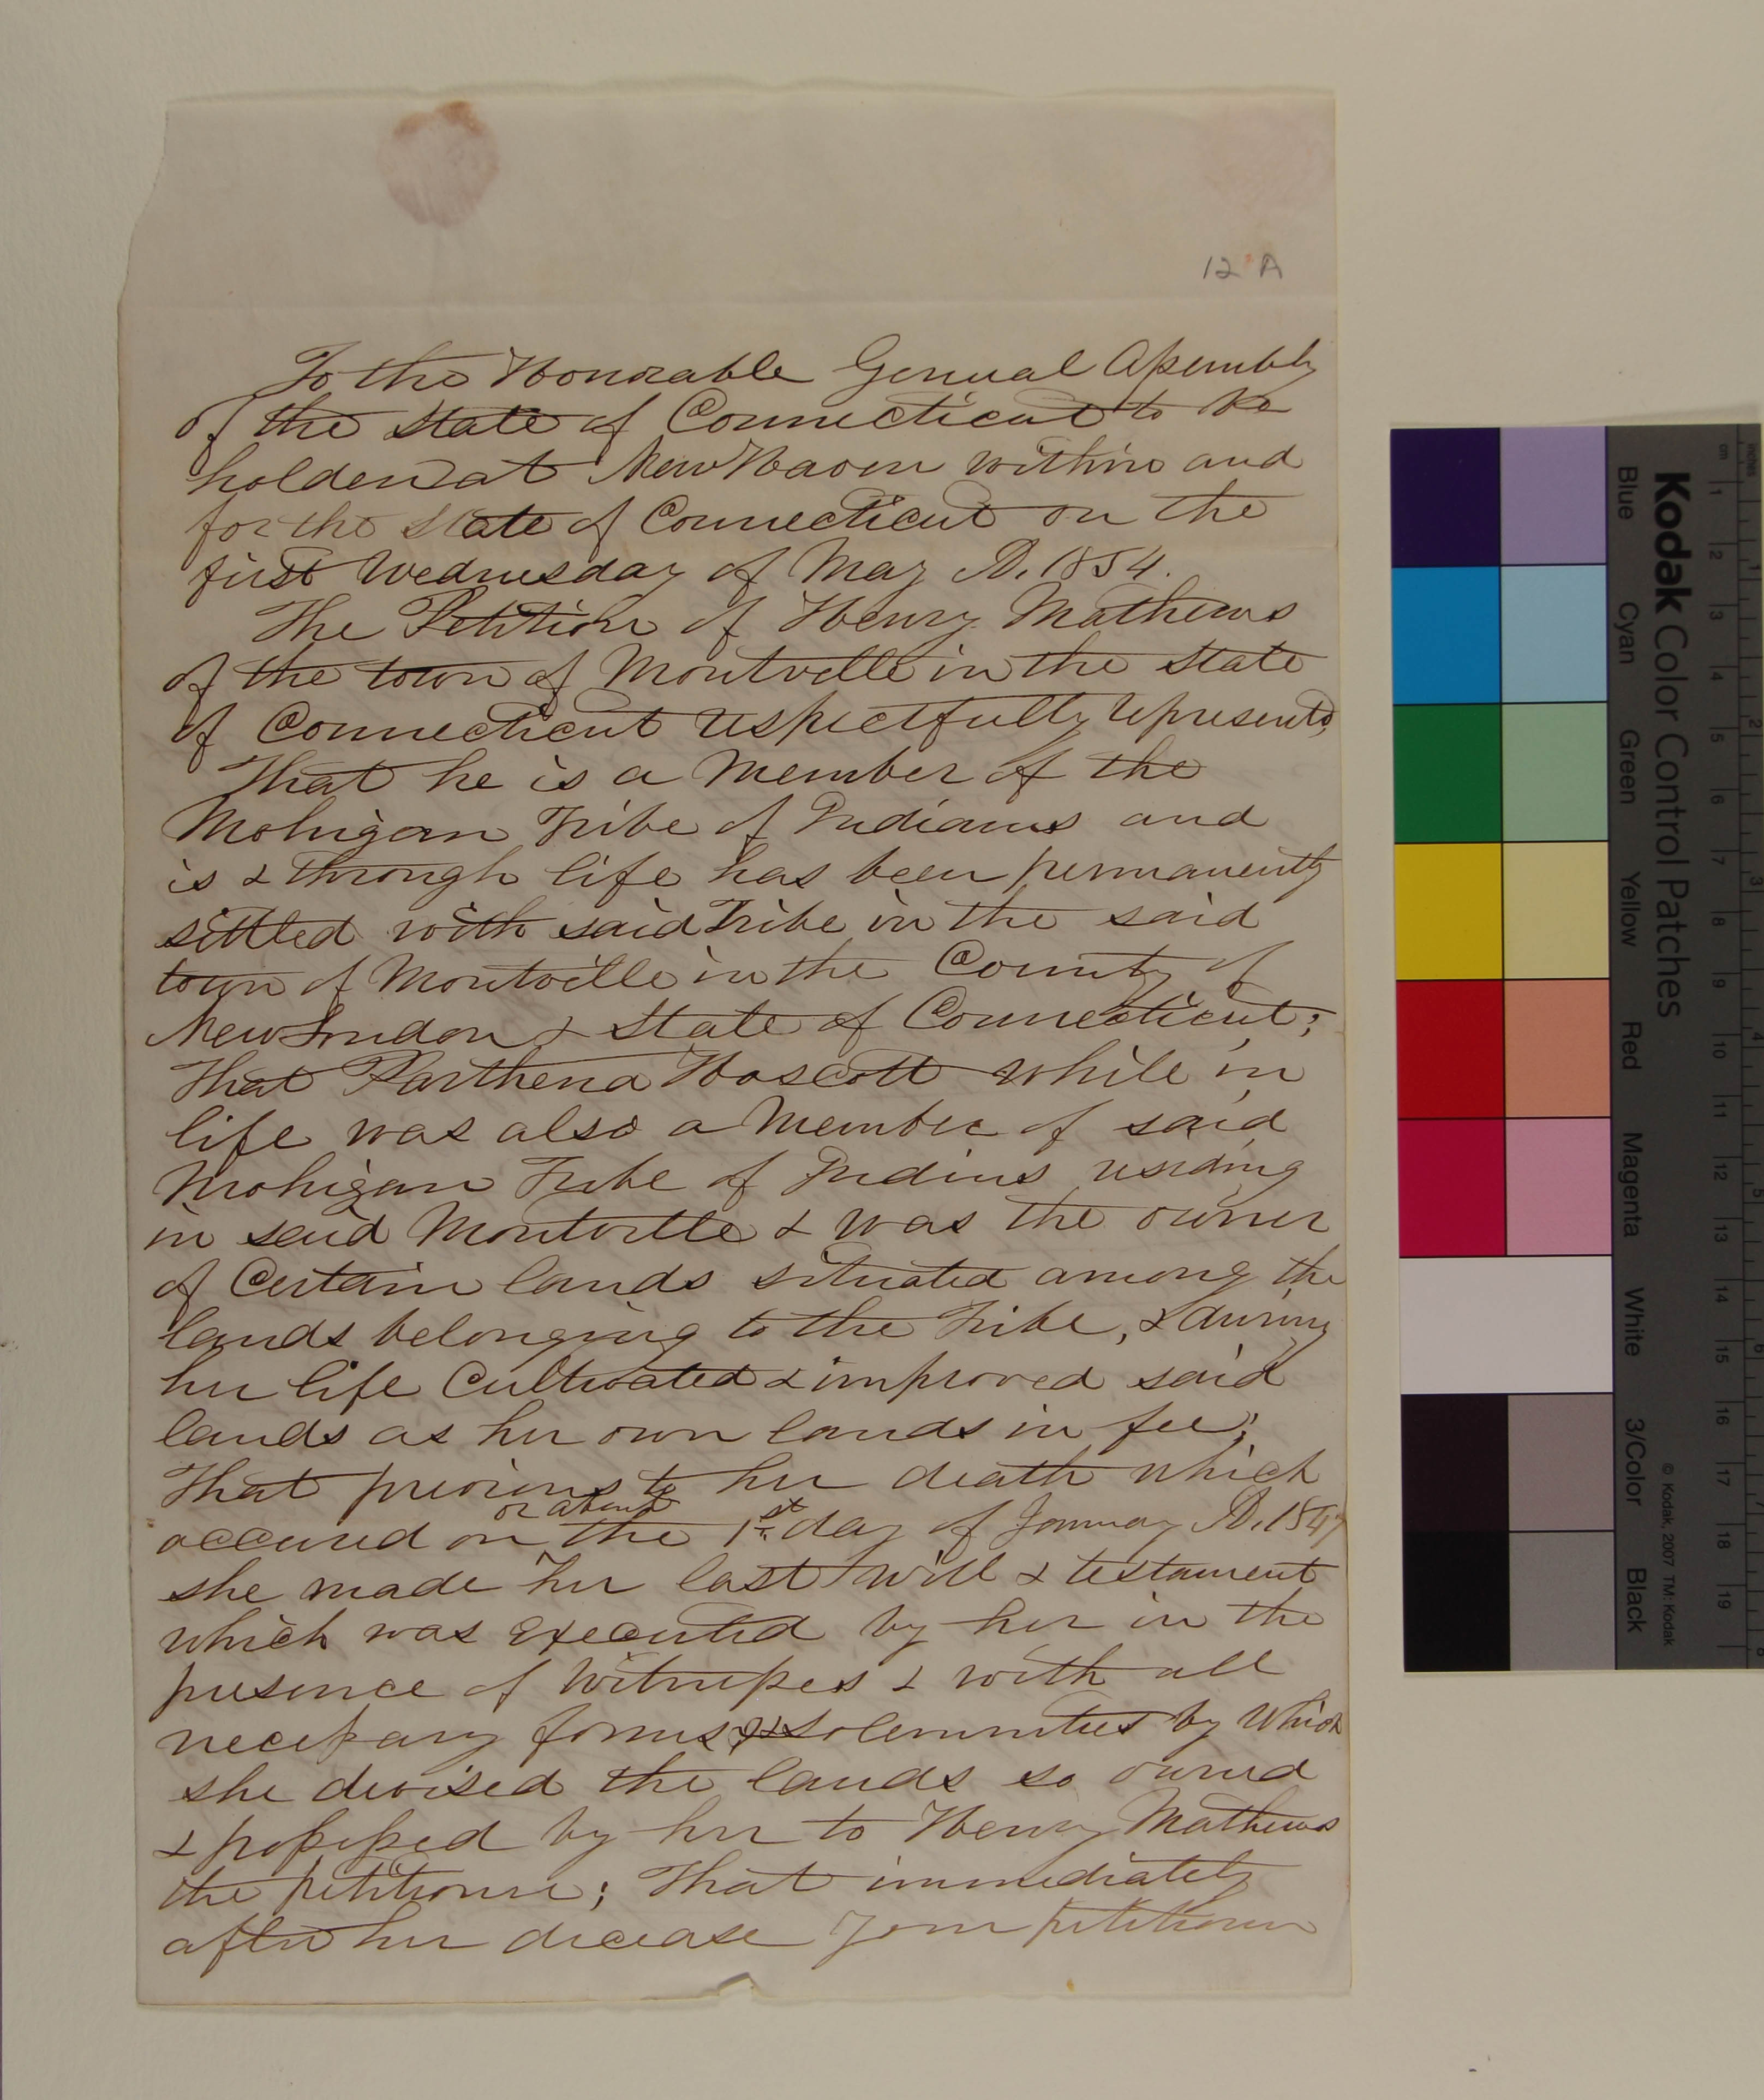 12 A
To the Honorable General Assembly
of the State of Connecticut to be
holden at New Haven within and
for the State of Connecticut on the
first Wednesday of May AD. 1854.
The Petition of Henry Mathews
of the town of Montville in the State
of Connecticut respectfully represents,
That he is a Member of the
Mohigan Tribe of Indians and
is & through life has been permanently
settled with said Tribe in the said
town of Montville in the County of
New London & State of Connecticut;
That Parthena Hoscott while in
life was also a Member of said
Mohigan Tribe of Indins residing
in said Montville & was the owner
of Certain lands situated among the
lands belonging to the Tribe, & during
her life Cultivated & improved said
lands as her own lands in fee;
That previous to her death which
or about
occured on the 1st day of January AD. 1847
she made her last will & testament
which was executed by her in the
presence of Witnesses & with all
necessary forms & solemnities by which
she devised the lands so owned
& possessed by her to Henry Mathews
the petitioner; That immediately
after her decease Your petitioner
Kodak Color Control Patches
Blue
Cyan
Green
Yellow
Red
Magenta
White
3/Color
Black
© Kodak, 2007 TM: Kodak
cm 1 2 3 4 5 6 7 8 9 10 11 12 13 14 15 16 17 18 19
inches 1 2 3 4 5 6